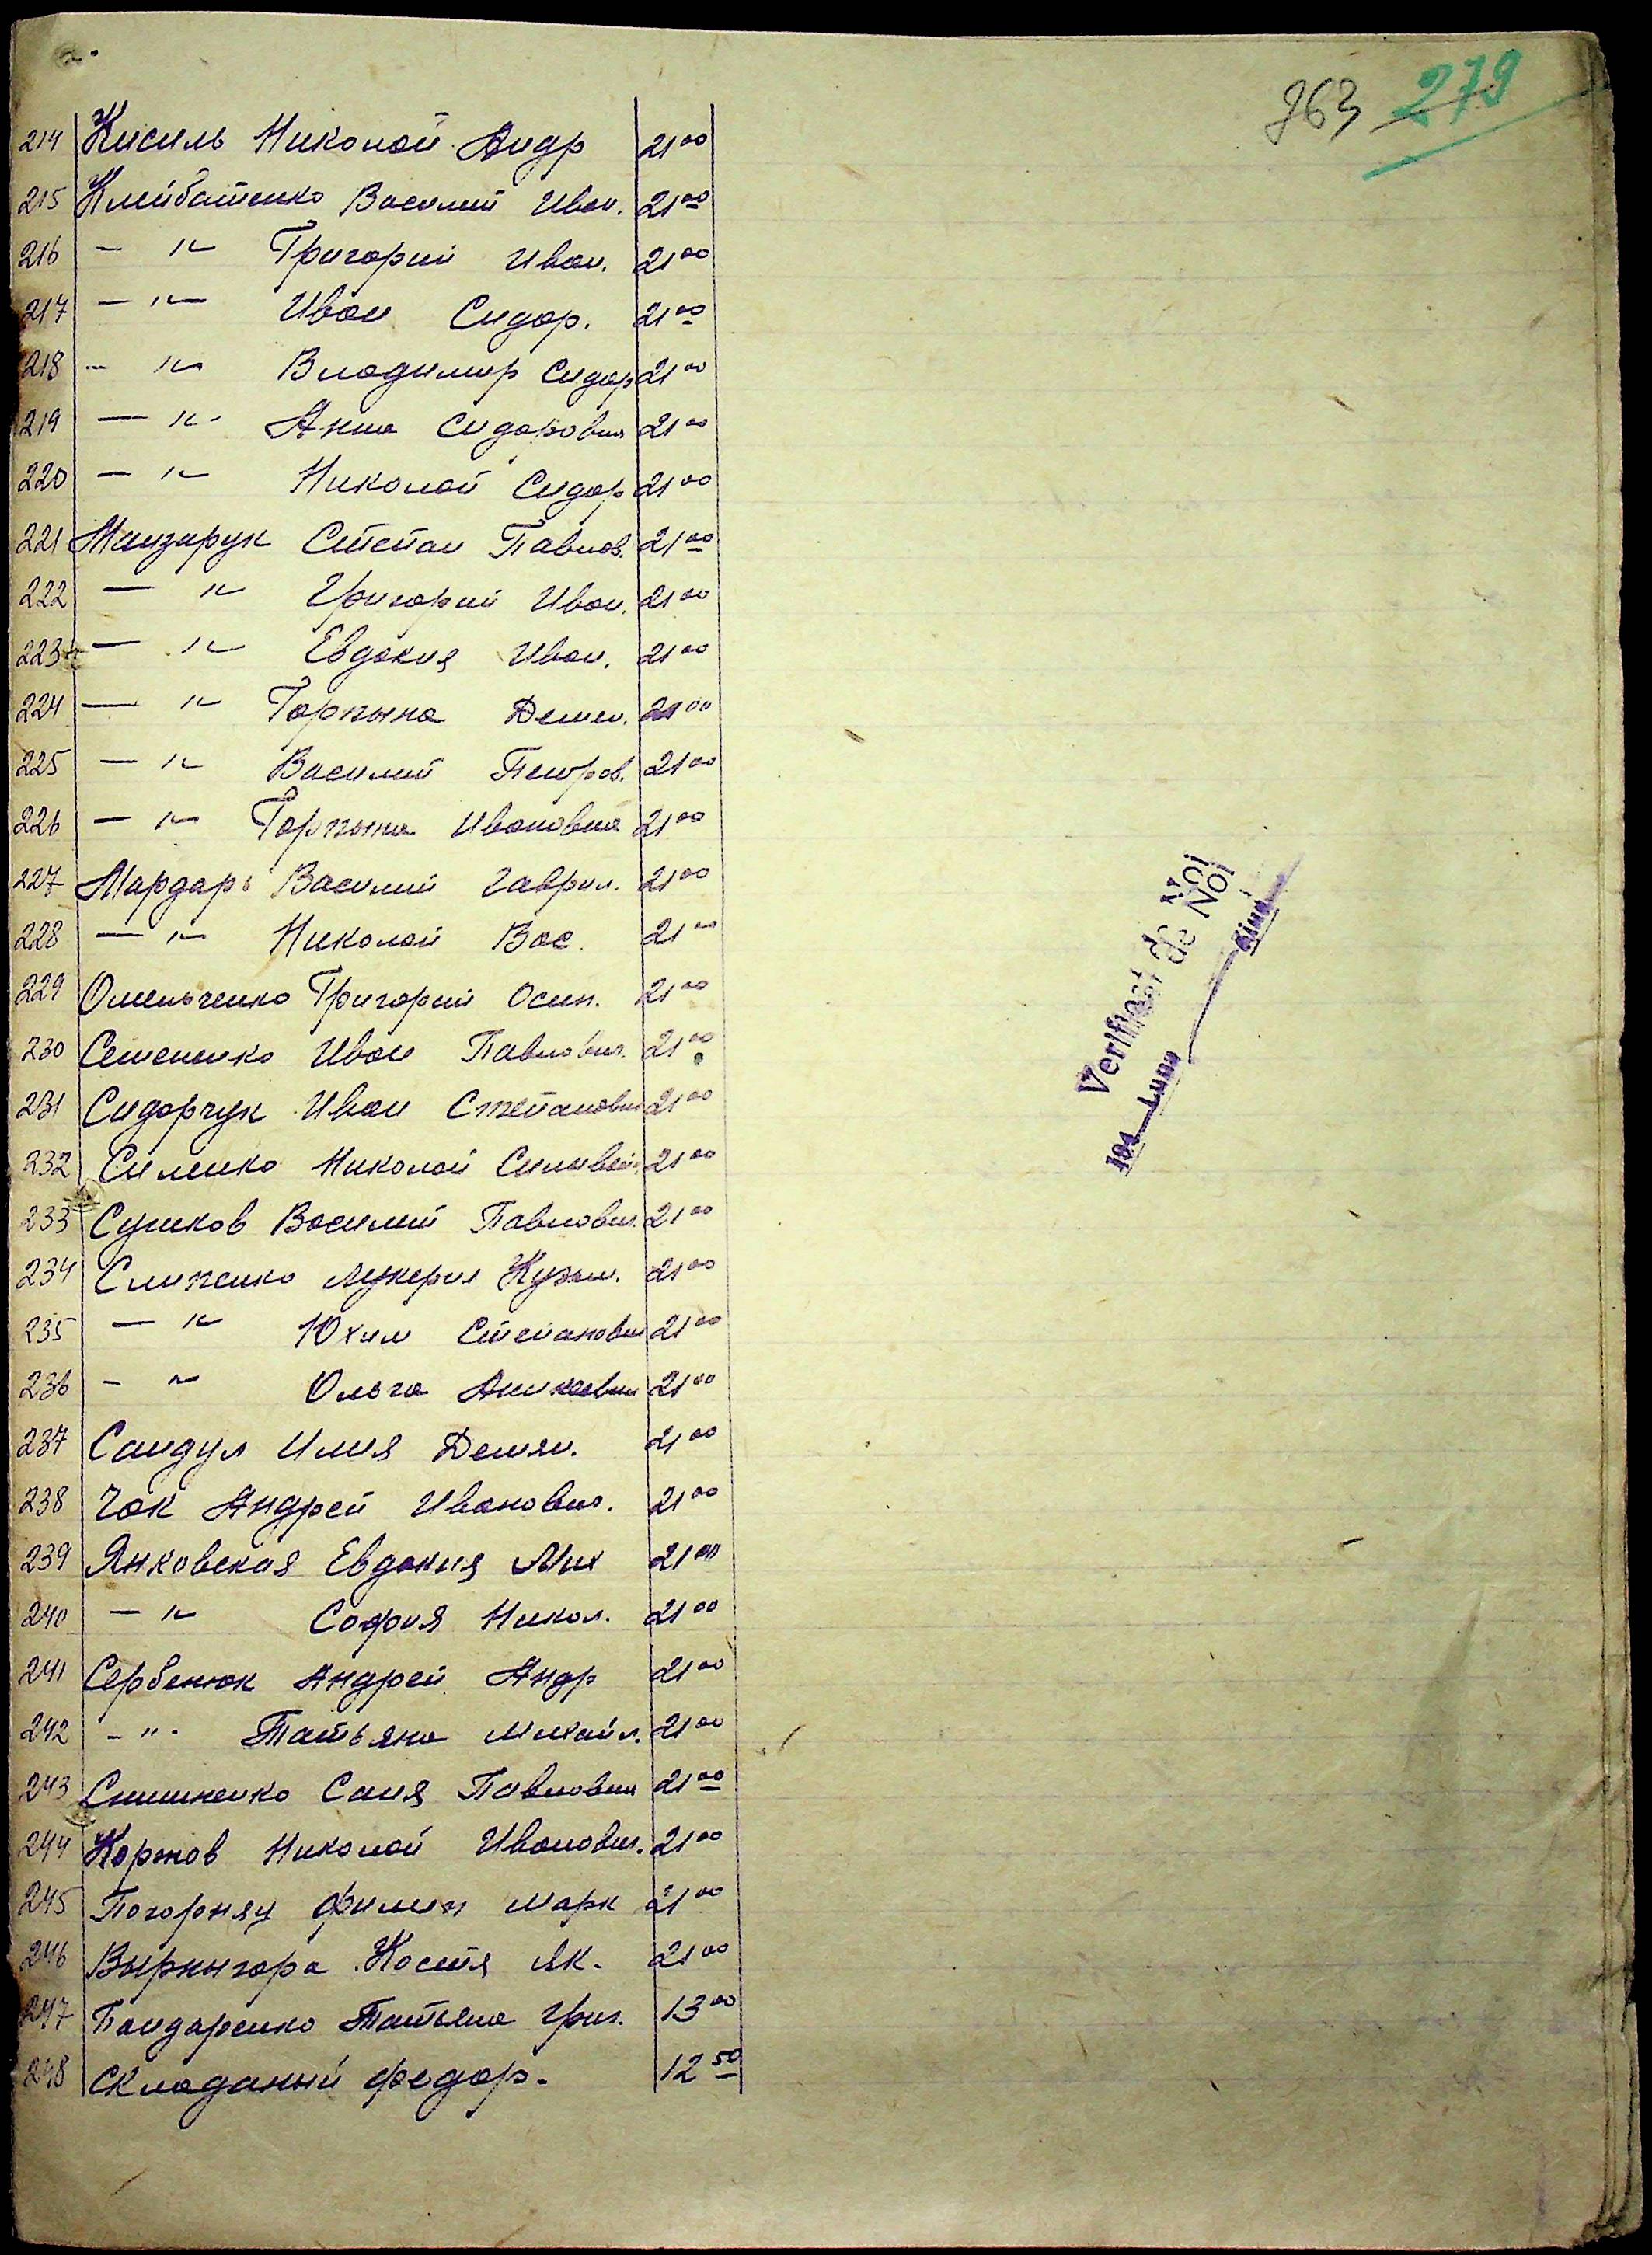 363 279
214 Кисиль Николай Андр 21 00
215 Клейбатенко Василий Иван. 21 00
216 — " — Григорий Иван. 21 00
217 — " — Иван Сидор. 21 00
218 — " — Владимир Сидор 21 00
219 — " — Анна Сидоровна 21 00
220 — " — Николай Сидор 21 00
221 Манзарук Степан Павлов. 21 00
222 — " — Григорий Иван. 21 00
223 — " — Евдокия Иван. 21 00
224 — " — Горпына Демен. 21 00
225 — " — Василий Петров. 21 00
226 — " — Горпына Ивановна 21 00
227 Мардарь Василий Гаврил. 21 00
228 — " — Николай Вас. 21 00
229 Омельченко Григорий Осип. 21 00
230 Семененко Иван Павлович. 21 00
231 Сидорчук Иван Степанович 21 00
232 Силенко Николай 21 00
233 Сушков Василий Павлович. 21 00
234 Слипенко Лукерия Кузьм. 21 00
235 — " — Юхим Степанович 21 00
236 — " — Ольга 21 00
237 Сандул Илия Демян. 21 00
238 Чок Андрей Иванович. 21 00
239 Янковская Евдокия Мих 21 00
240 — " — София Никол. 21 00
241 Сербенюк Андрей Андр 21 00
242 — " — Татьяна Михайл. 21 00
243 Саня Павловна 21 00
244 Коржов Николай Иванович. 21 00
245 Погорняц Филип Марк 21 00
246 Вырныгора Костя Як. 21 00
247 Бандаренко Татьяна Григ. 13 00
248 Складаный Федор. 12 50
Verificat de Noi
de Noi
194 Luna Ziua